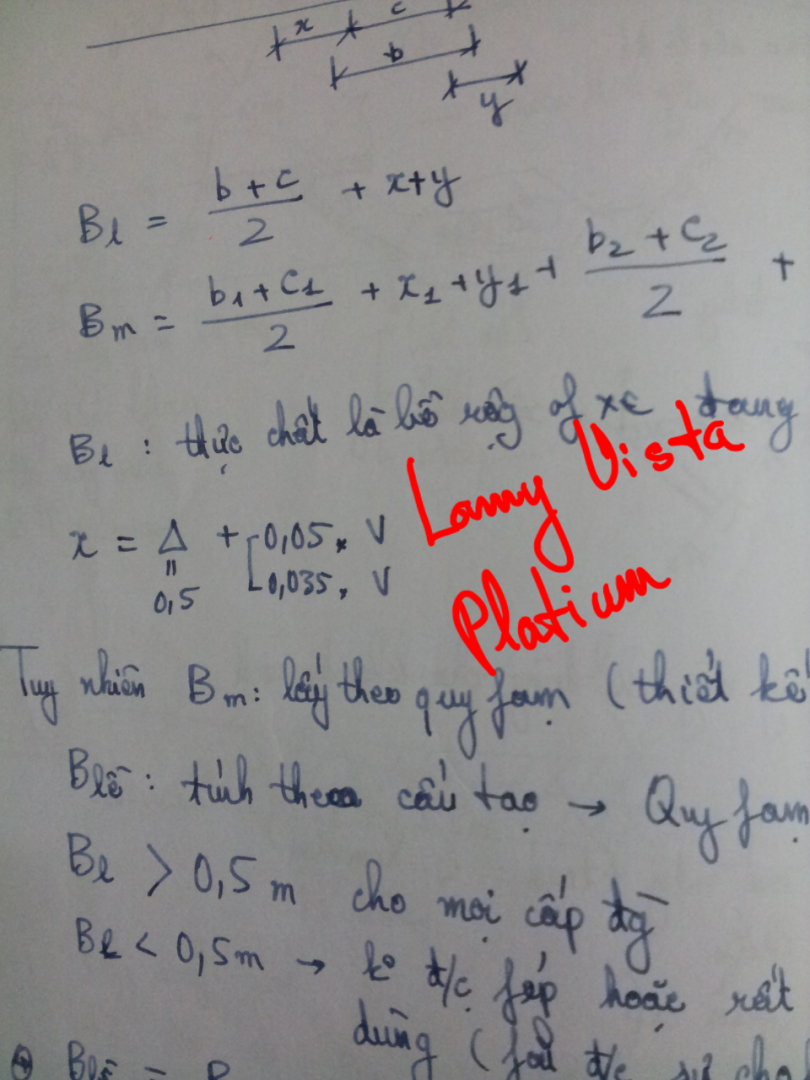 x c
b
y
Bl = b + c / 2 + x+y
Bm = b1 + c1 / 2 + x1 + y1 + b2 + c2 / 2 +
Bl : thực chất là bề rộg of xe đang
Lamy Vista
x = Δ + 0,05 . V
= 0,5
0,035 . V
Platium
Tuy nhiên Bm: lấy theo quy fạm (thiết kế
Blề : tính theo cấu tạo → Quy fạm
Bl > 0,5m cho mọi cấp đg
Bl < 0,5m → ko đ/c fép hoặc rất
dùng ( đ/c
Blề =